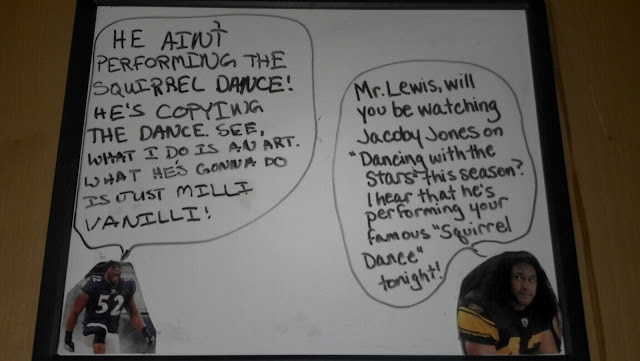 HE AIN'T
PERFORMING THE
SQUIRREL DANCE!
HE'S COPYING
THE DANCE. SEE,
WHAT I DO IS AN ART.
WHAT HE'S GONNA DO
IS JUST MILLI
VANILLI!
Mr. Lewis, will
you be watching
Jacoby Jones on
"Dancing with the
Stars" this season?
I hear that he's
performing your
famous "Squirrel
Dance"
tonight!
52